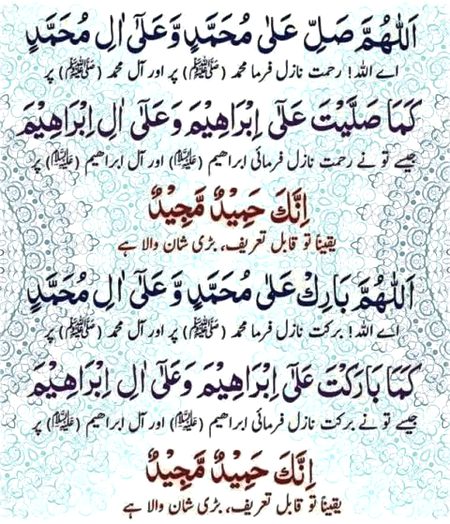 اَللّٰهُمَّ صَلِّ عَلٰى مُحَمَّدٍ وَّعَلٰٓى اٰلِ مُحَمَّدٍ
اے اللہ! رحمت نازل فرما محمد (ﷺ) پر اور آل محمد (ﷺ) پر
كَمَا صَلَّيْتَ عَلٰٓى اِبْرَاهِيْمَ وَعَلٰٓى اٰلِ اِبْرَاهِيْمَ
جیسے تو نے رحمت نازل فرمائی ابراھیم (علیہ السلام) اور آل ابراھیم (علیہ السلام) پر
اِنَّكَ حَمِيْدٌ مَّجِيْدٌ
یقیناً تو قابل تعریف، بڑی شان والا ہے
اَللّٰهُمَّ بَارِكْ عَلٰى مُحَمَّدٍ وَّعَلٰٓى اٰلِ مُحَمَّدٍ
اے اللہ! برکت نازل فرما محمد (ﷺ) پر اور آل محمد (ﷺ) پر
كَمَا بَارَكْتَ عَلٰٓى اِبْرَاهِيْمَ وَعَلٰٓى اٰلِ اِبْرَاهِيْمَ
جیسے تو نے برکت نازل فرمائی ابراھیم (علیہ السلام) اور آل ابراھیم (علیہ السلام) پر
اِنَّكَ حَمِيْدٌ مَّجِيْدٌ
یقیناً تو قابل تعریف، بڑی شان والا ہے